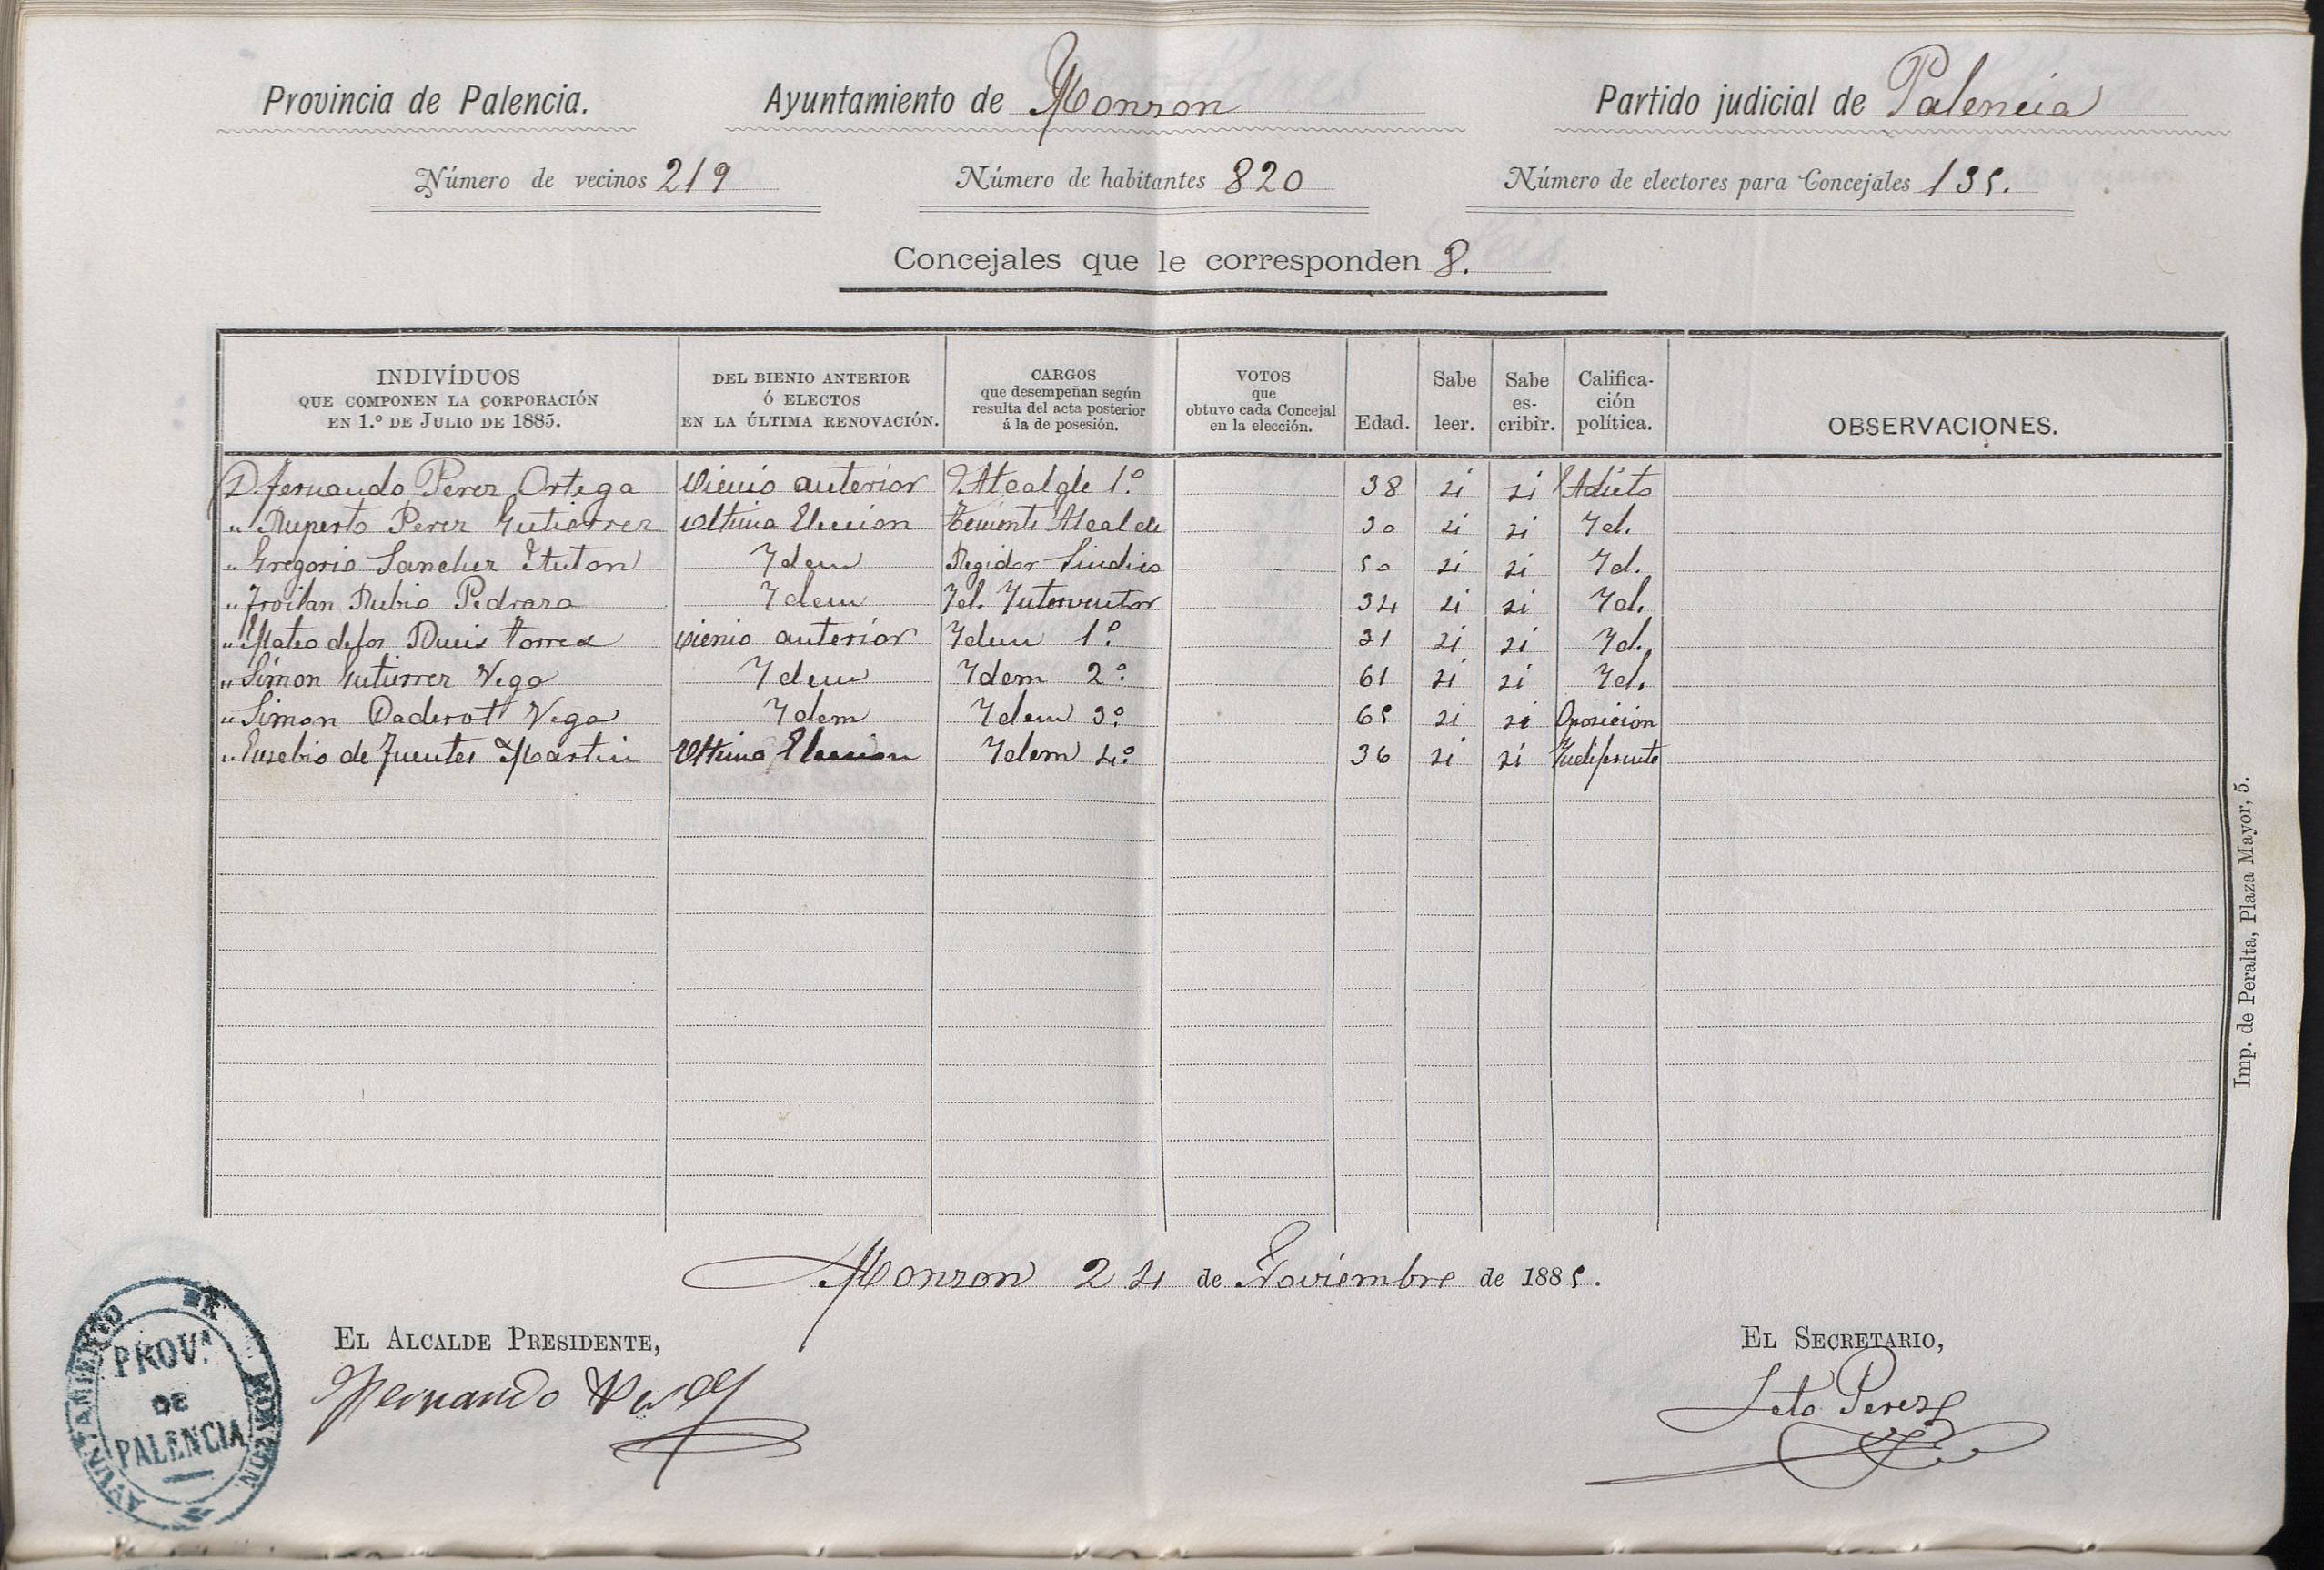 Provincia de Palencia. Ayuntamiento de Monzon Partido judicial de Palencia
Número de vecinos 219 Número de habitantes 820 Número de electores para Concejáles 135.
Concejales que le corresponden 8.
INDIVÍDUOS QUE COMPONEN LA CORPORACIÓN EN 1.º DE JULIO DE 1885. DEL BIENIO ANTERIOR Ó ELECTOS EN LA ÚLTIMA RENOVACIÓN. CARGOS que desempeñan según resulta del acta posterior á la de posesión. VOTOS que obtuvo cada Concejal en la elección. Edad. Sabe leer. Sabe es-cribir. Califica-ción política. OBSERVACIONES.
D Fernando Perez Ortega Vienio anterior Alcalde 1.º 38 si si Adicto
" Ruperto Perez Gutierrez Ultima Eleccion Teniente Alcalde 30 si si Id.
" Gregorio Sanchez Idem Regidor Sindico 50 si si Id.
" Froilan Rubio Pedraza Idem Id. Interventor 34 si si Id.
" Mateo de los Torres Vienio anterior Idem 1.º 31 si si Id.
" Simon Gutierrez Vega Idem Idem 2.º 61 si si Id.
" Simon Daderot Vega Idem Idem 3.º 65 si si Oposición
" Eusebio de Fuentes Martin Ultima Eleccion Idem 4.º 36 si si Indiferente
Imp. de Peralta, Plaza Mayor, 5.
Monzon 24 de Noviembre de 1885.
EL ALCALDE PRESIDENTE, EL SECRETARIO,
Fernando Perez Leto Perez
AYUNTAMIENTO DE MONZON
PROV.ª
DE
PALENCIA